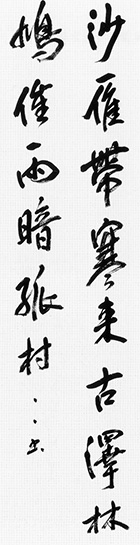 沙雁帶寒来古澤林
鳩催雨暗孤村